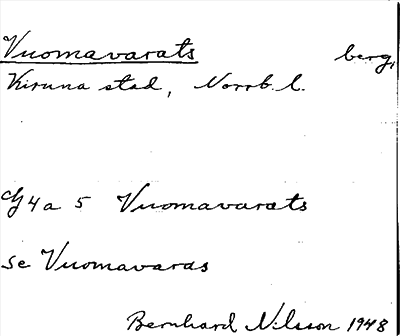 Vuomavarats berg,
Kiruna stad, Norrb. l.
4a 5 Vuomavarats
se Vuomavaras
Bernhard Nilsson 1948